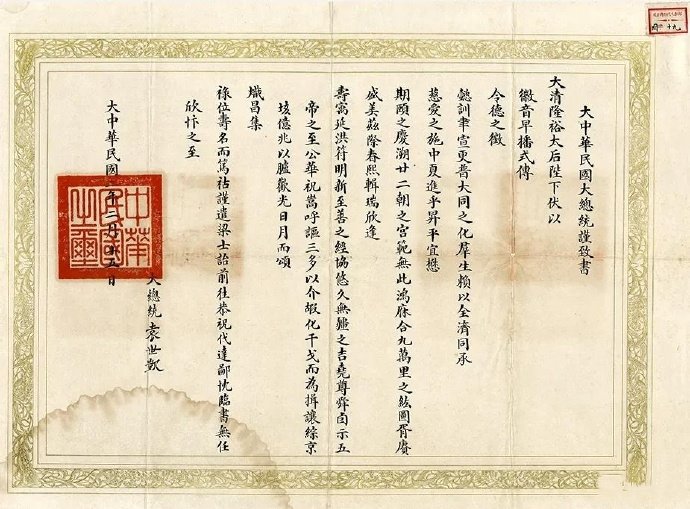 大中華民國大總統謹致書
大清隆裕太后陛下伏以
徽音早播式傳
令德之徵
懿訓聿宣更普大同之化羣生賴以全濟同承
慈愛之施中夏進乎昇平宜懋
期頤之慶溯廿二朝之宮範無此鴻庥合九萬里之鋐圖胥賡
盛美茲際春熙輯瑞欣逢
壽寓延洪符明新至善之經協悠久無疆之吉堯尊舜卣示五
帝之至公華祝嵩呼謳三多以介嘏化干戈而為揖讓綜京
垓億兆以臚歡光日月而頌
熾昌集
祿位壽名而篤祜謹遣梁士詒前往恭祝代達鄙忱臨書無任
欣忭之至
大中華民國二年二月十五日
大總統 袁世凱
中華民國之璽